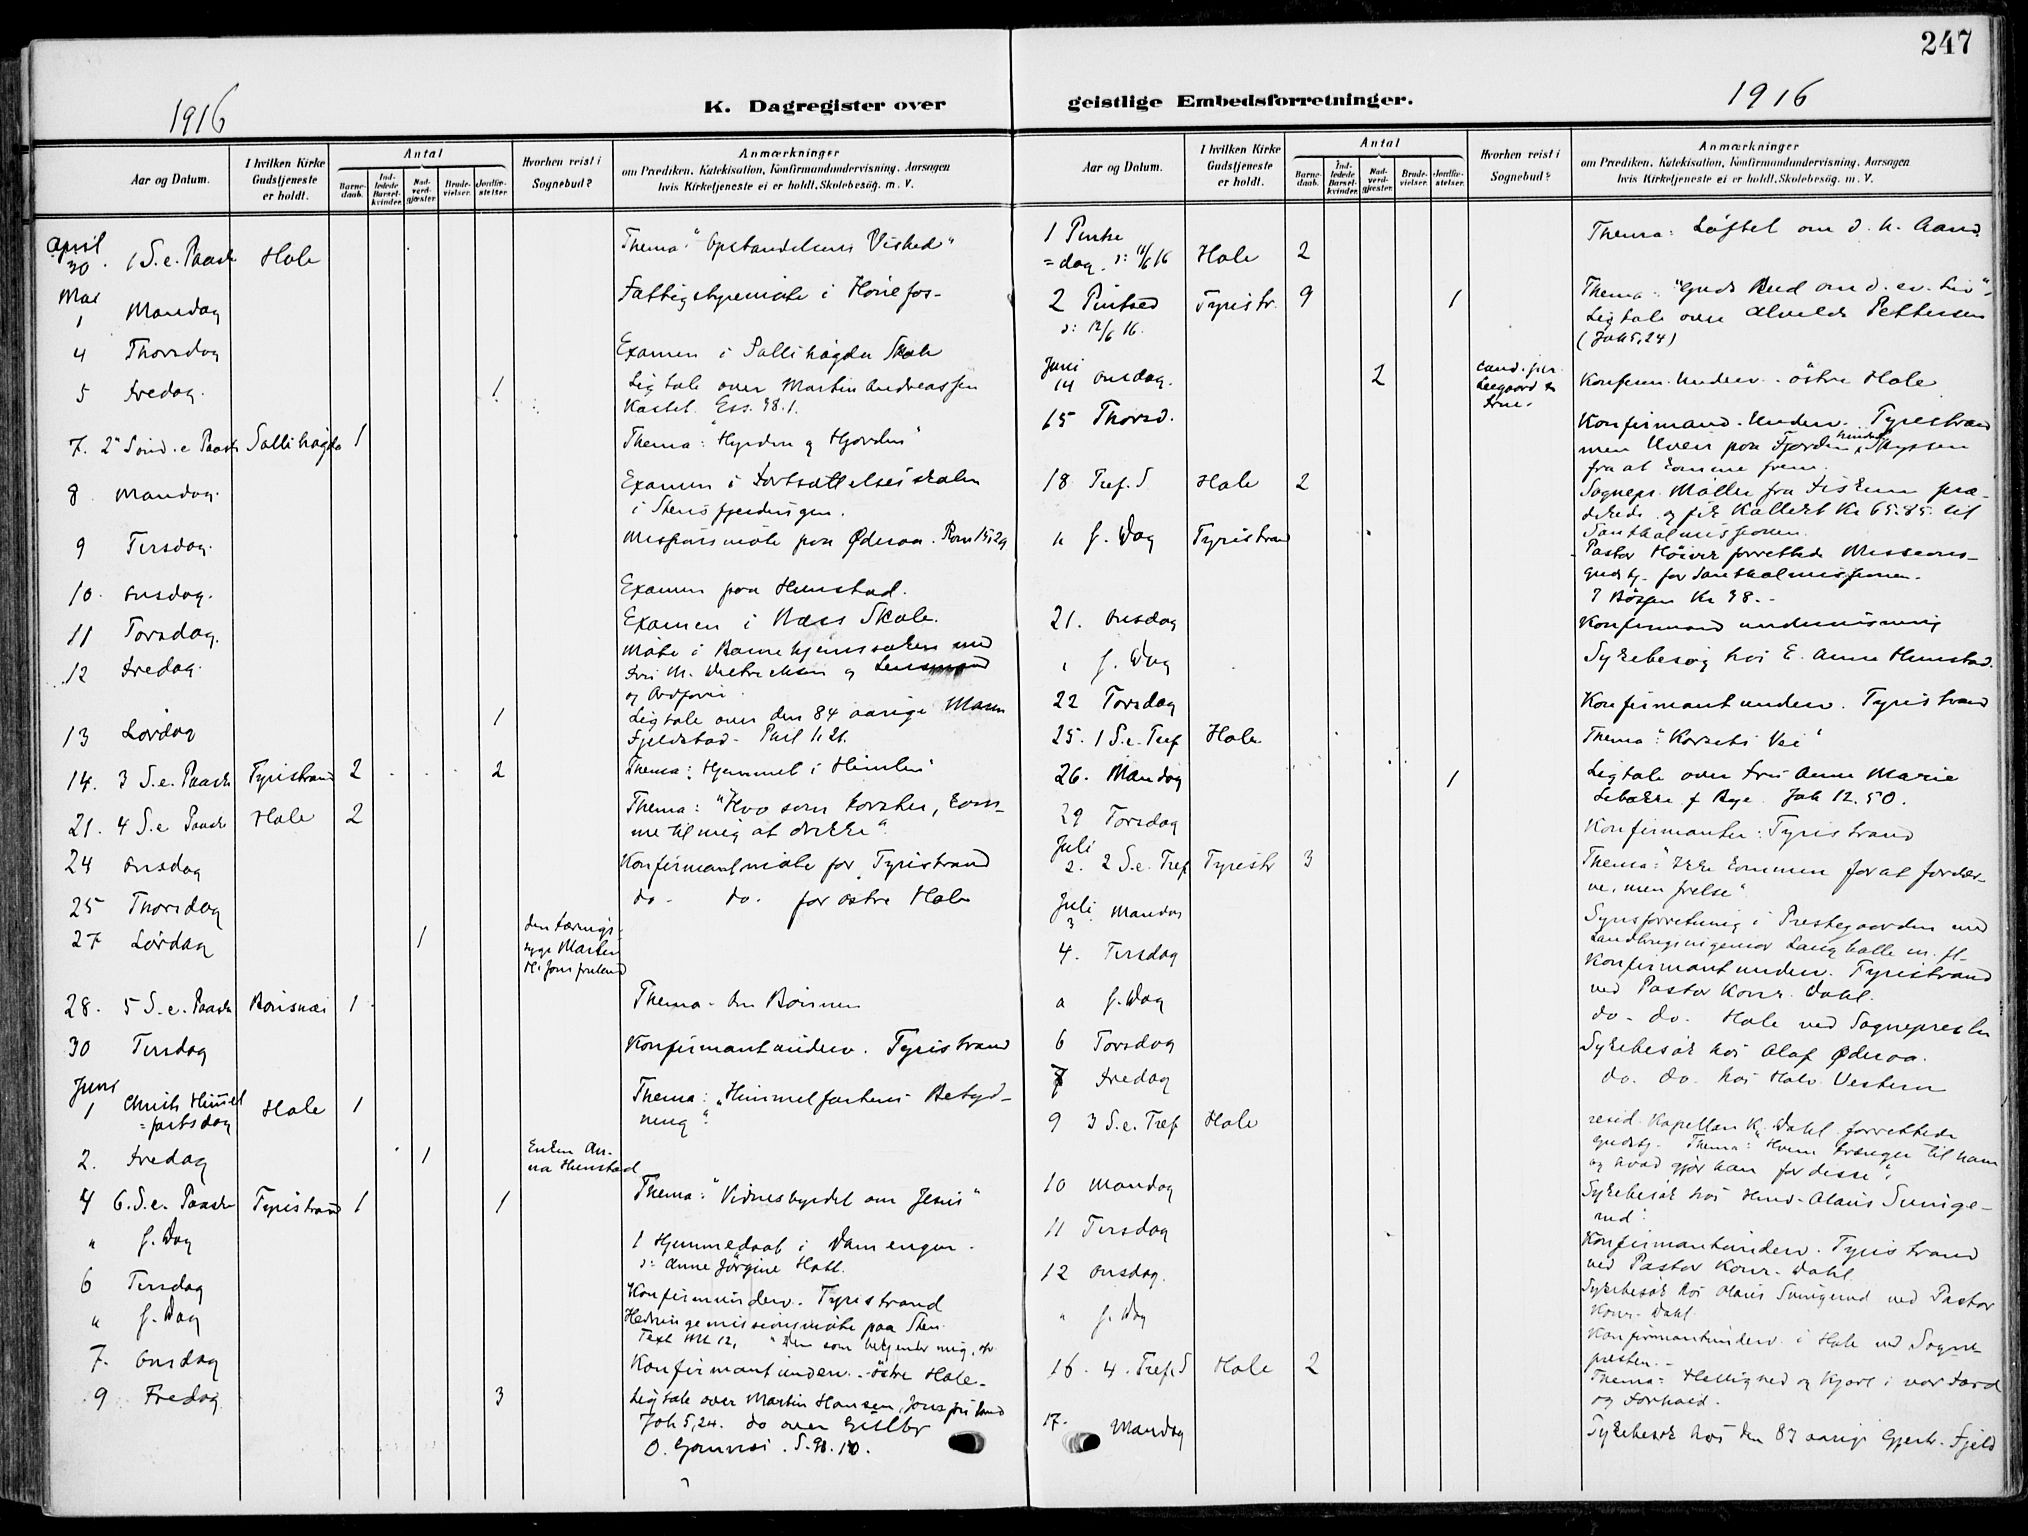 247
1916
K. Dagregister over
geistlige Embedsforretninger.
1916
Aar og Datum.
I hvilken Kirke Gudstjeneste er holdt.
Antal
Barnedaab.
Indledede Barselkvinder.
Nadverdgjæster.
Brudevielser.
Jordfæstelser.
Hvorhen reist i Sognebud?
Anmærkninger
om Prædiken, Katekisation, Konfirmandundervisning, Aarsagen
hvis Kirketjeneste ei er holdt, Skolebesøg. m. V.
April
30. 1 S. e. Paask Hole Thema: "Opstandelsens Vished"
Mai
1 Mandag Fattigstyremøte i Hønefos-
4 Thorsdag Examen i Sollihøgda Skole
5 Fredag. 1 Ligtale over Martin Andreassen
Es. 38.1.
7. 2 Sønd. e Paask Sollihøgda 1 Thema: "Hyrden og Hjorden"
8 Mandag. Examen i Fortsættelsesskolen
i Stensfjerdingen.
9 Tirsdag. Missionsmøte paa Øderaa. Rom 15,29
10. Onsdag. Examen paa Hunstad.
11 Torsdag. Examen i Næss Skole.
12 Fredag. Møte i Barnehjemssaken med
og Ordfører.
13 Lørdag 1 Ligtale over den 84 aarige
Fjeldstad. 1.21.
14. 3 S. e. Paask Tyristrand 2 2 Thema: "Hjemmet i Himlen"
21. 4 S. e. Paask Hole 2 Thema: "Hvo som tørster, kom-
me til mig at drikke".
24 Onsdag Konfirmantmøte for Tyristrand
25 Thorsdag do. do. for østre Hole
27 Lørdag 1 den tærings-
syge Martin
H. Jonsrud
28. 5 S. e. Paask Bønsnæs 1 Thema. Om Bønnen
30 Tirsdag Konfirmantunderv. Tyristrand
Juni
1 Christi Himmel
=fartsdag Hole 1 Thema: "Himmelfartens Betyd-
ning".
2. Fredag 1 Enken An-
na Hunstad
4 6. S. e. Paask Tyristrand 1 1 Thema: "Vidnesbyrdet om Jesus"
" s. Dag 1 Hjemmedaab i Damengen.
ɔ: Anne Jørgine
6 Tirsdag Konfirmunderv. Tyristrand
" s. Dag Hedningemissionsmøte paa Sten.
Text "Den som bekjender mig, osv.
7. Onsdag Konfirmantunderv. østre Hole-
9 Fredag 3 Ligtale over Martin Hansen,
Joh 5,24. do over Gulbr
O. Gomnæs. S. 90.10.
Aar og Datum.
I hvilken Kirke Gudstjeneste er holdt.
Antal
Barnedaab.
Indledede Barselkvinder.
Nadverdgjæster.
Brudevielser.
Jordfæstelser.
Hvorhen reist i Sognebud?
Anmærkninger
om Prædiken, Katekisation, Konfirmandundervisning, Aarsagen
hvis Kirketjeneste ei er holdt, Skolebesøg. m. V.
1 Pintse
=dag. ɔ: 11/6 16 Hole 2 Thema: Løftet om d. h. Aand.
2 Pintsed Tyristr. 9 1 Thema: "Guds Bud om d. ev. Liv".
ɔ: 12/6 16. Ligtale over Alvilde Pettersen
(Joh 5,24)
Juni
14 Onsdag. 2 cand. jur.
Konferm. Underv. østre Hole
15 Thorsd. Konfirmand. Underv. Tyristrand
men Uveir paa Fjorden hindret Skyssen
fra at komme frem.
18 Tref. S Hole 2 Sognepr. Møller fra Fiskum præ-
dikede og fik Kollekt Kr 65.85 til
Santhalmissionen.
" s. Dag Tyristrand Pastor Høiver forrettede Missions-
gudstj. for Santhalmissionen.
I Bøssen Kr 38.-
21. Onsdag Konfirmandundervisning
" s. Dag Sykebesøg hos E. Anna Hunstad.
22 Torsdag Konfirmantunderv. Tyristrand
25. 1 S. e. Tref Hole Thema: "Korsets Vei"
26. Mandag 1 Ligtale over Fru Anne Marie
f Bye. Joh 12.50.
29 Torsdag Konfirmanter: Tyristrand
Juli
2. 2 S. e. Tref Tyristr 3 Thema: "Ikke kommen for at fordær-
ve, men frelse".
Juli
3 Mandag Synsforretning i Prestegaarden med
Landbrugsingeniør Langballe m. fl-
4. Tirsdag Konfirmantunderv. Tyristrand
ved Pastor Konr. Dahl.
" s. Dag do. do. Hole ved Sognepresten
6 Torsdag Sykebesøk hos Olaf Øderaa.
7 Fredag do. do. hos Halv. Vestern
9 3 S. e. Tref Hole resid. Kapellan K. Dahl forrettede
gudstj. Thema: "Hvem trænger til ham
og hvad gjør han for disse".
10 Mandag Sykebesøk hos Olaus Svinge-
rud.
11 Tirsdag Konfirmantunderv. Tyristrand
ved Pastor Konr. Dahl
12 Onsdag. Sykebesøk hos Olaus Svingerud ved Pastor
Konr. Dahl
" s. Dag Konfirmantunderv. i Hole ved Sogne-
presten.-
16. 4. Tref. S Hole 2 Thema: Hellighed og Kjærl. i vor Færd
og Forhold.
17. Mandag Sykebesøk hos den 83 aarige Gjert. Fjeld